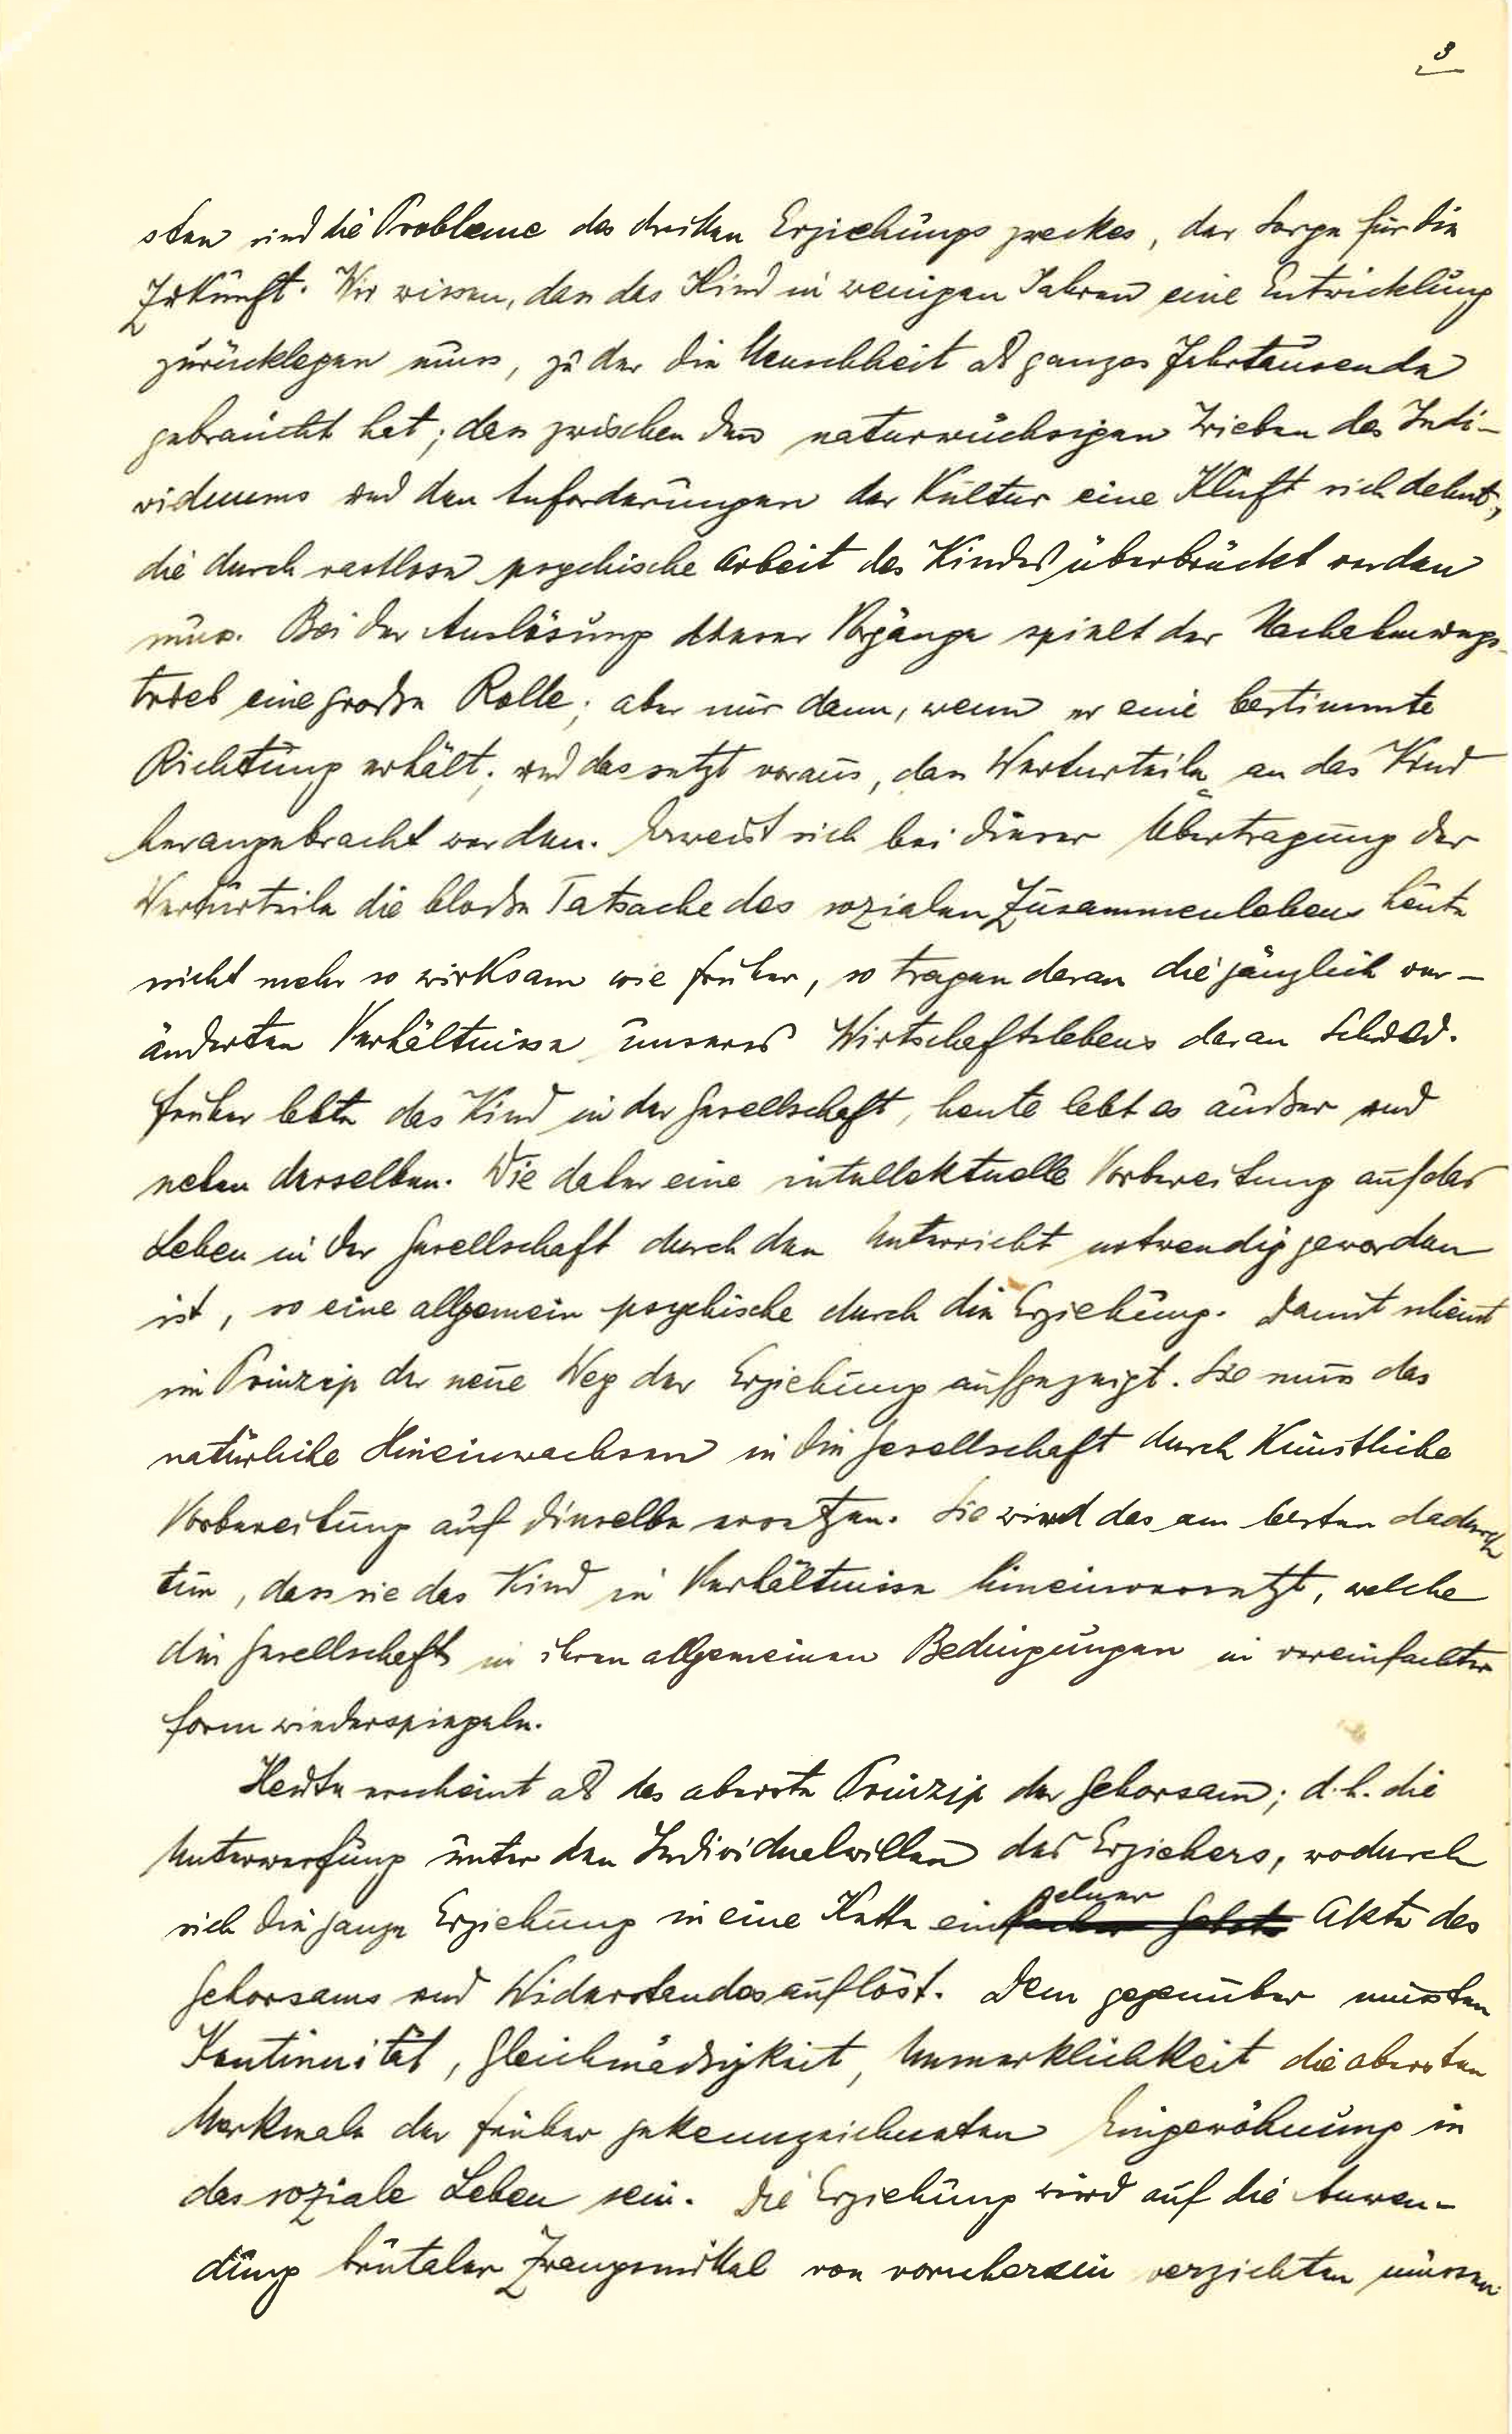 3
sten sind die Probleme des dritten Erziehungszweckes, der Sorge für die
Zukunft. Wir wissen, dass das Kind in wenigen Jahren eine Entwicklung
zurücklegen muss, zu der die Menschheit als ganzes Jahrtausende
gebraucht hat; dass zwischen den naturwüchsigen Trieben des Indi-
viduums und den Anforderungen der Kultur eine Kluft sich dehnt,
die durch rastlose psychische Arbeit des Kindes überbrückt werden
muss. Bei der Auslösung dieser Vorgänge spielt der Nachahmungs-
trieb eine große Rolle; aber nur dann, wenn er eine bestimmte
Richtung erhält; und das setzt voraus, dass Werturteile an das Kind
herangebracht werden. Erweist sich bei dieser Übertragung der
Werturteile die bloße Tatsache des sozialen Zusammenlebens heute
nicht mehr so wirksam wie früher, so tragen daran die gänzlich ver-
änderten Verhältnisse unseres Wirtschaftslebens daran Schuld.
Früher lebte das Kind in der Gesellschaft, heute lebt es außer und
neben derselben. Wie daher eine intellektuelle Vorbereitung auf das
Leben in der Gesellschaft durch den Unterricht notwendig geworden
ist, so eine allgemein psychische durch die Erziehung. Damit scheint
im Prinzip der neue Weg der Erziehung aufgezeigt. Sie muss das
natürliche Hineinwachsen in die Gesellschaft durch künstliche
Vorbereitung auf dieselbe ersetzen. Sie wird das am besten dadurch
tun, dass sie das Kind in Verhältnisse hineinversetzt, welche
die Gesellschaft in ihren allgemeinen Bedingungen in vereinfachter
Form wiederspiegeln.
Heute erscheint als das oberste Prinzip der Gehorsam; d.h. die
Unterwerfung unter den Individualwillen des Erziehers, wodurch
sich die ganze Erziehung in eine Kette einzelner Akte des
Gehorsams und Widerstandes auflöst. Dem gegenüber müssten
Kontinuität, Gleichmäßigkeit, Unmerklichkeit die obersten
Merkmale der früher gekennzeichneten Eingewöhnung in
das soziale Leben sein. Die Erziehung wird auf die Anwen-
dung brutaler Zwangsmittel von vorneherein verzichten müssen